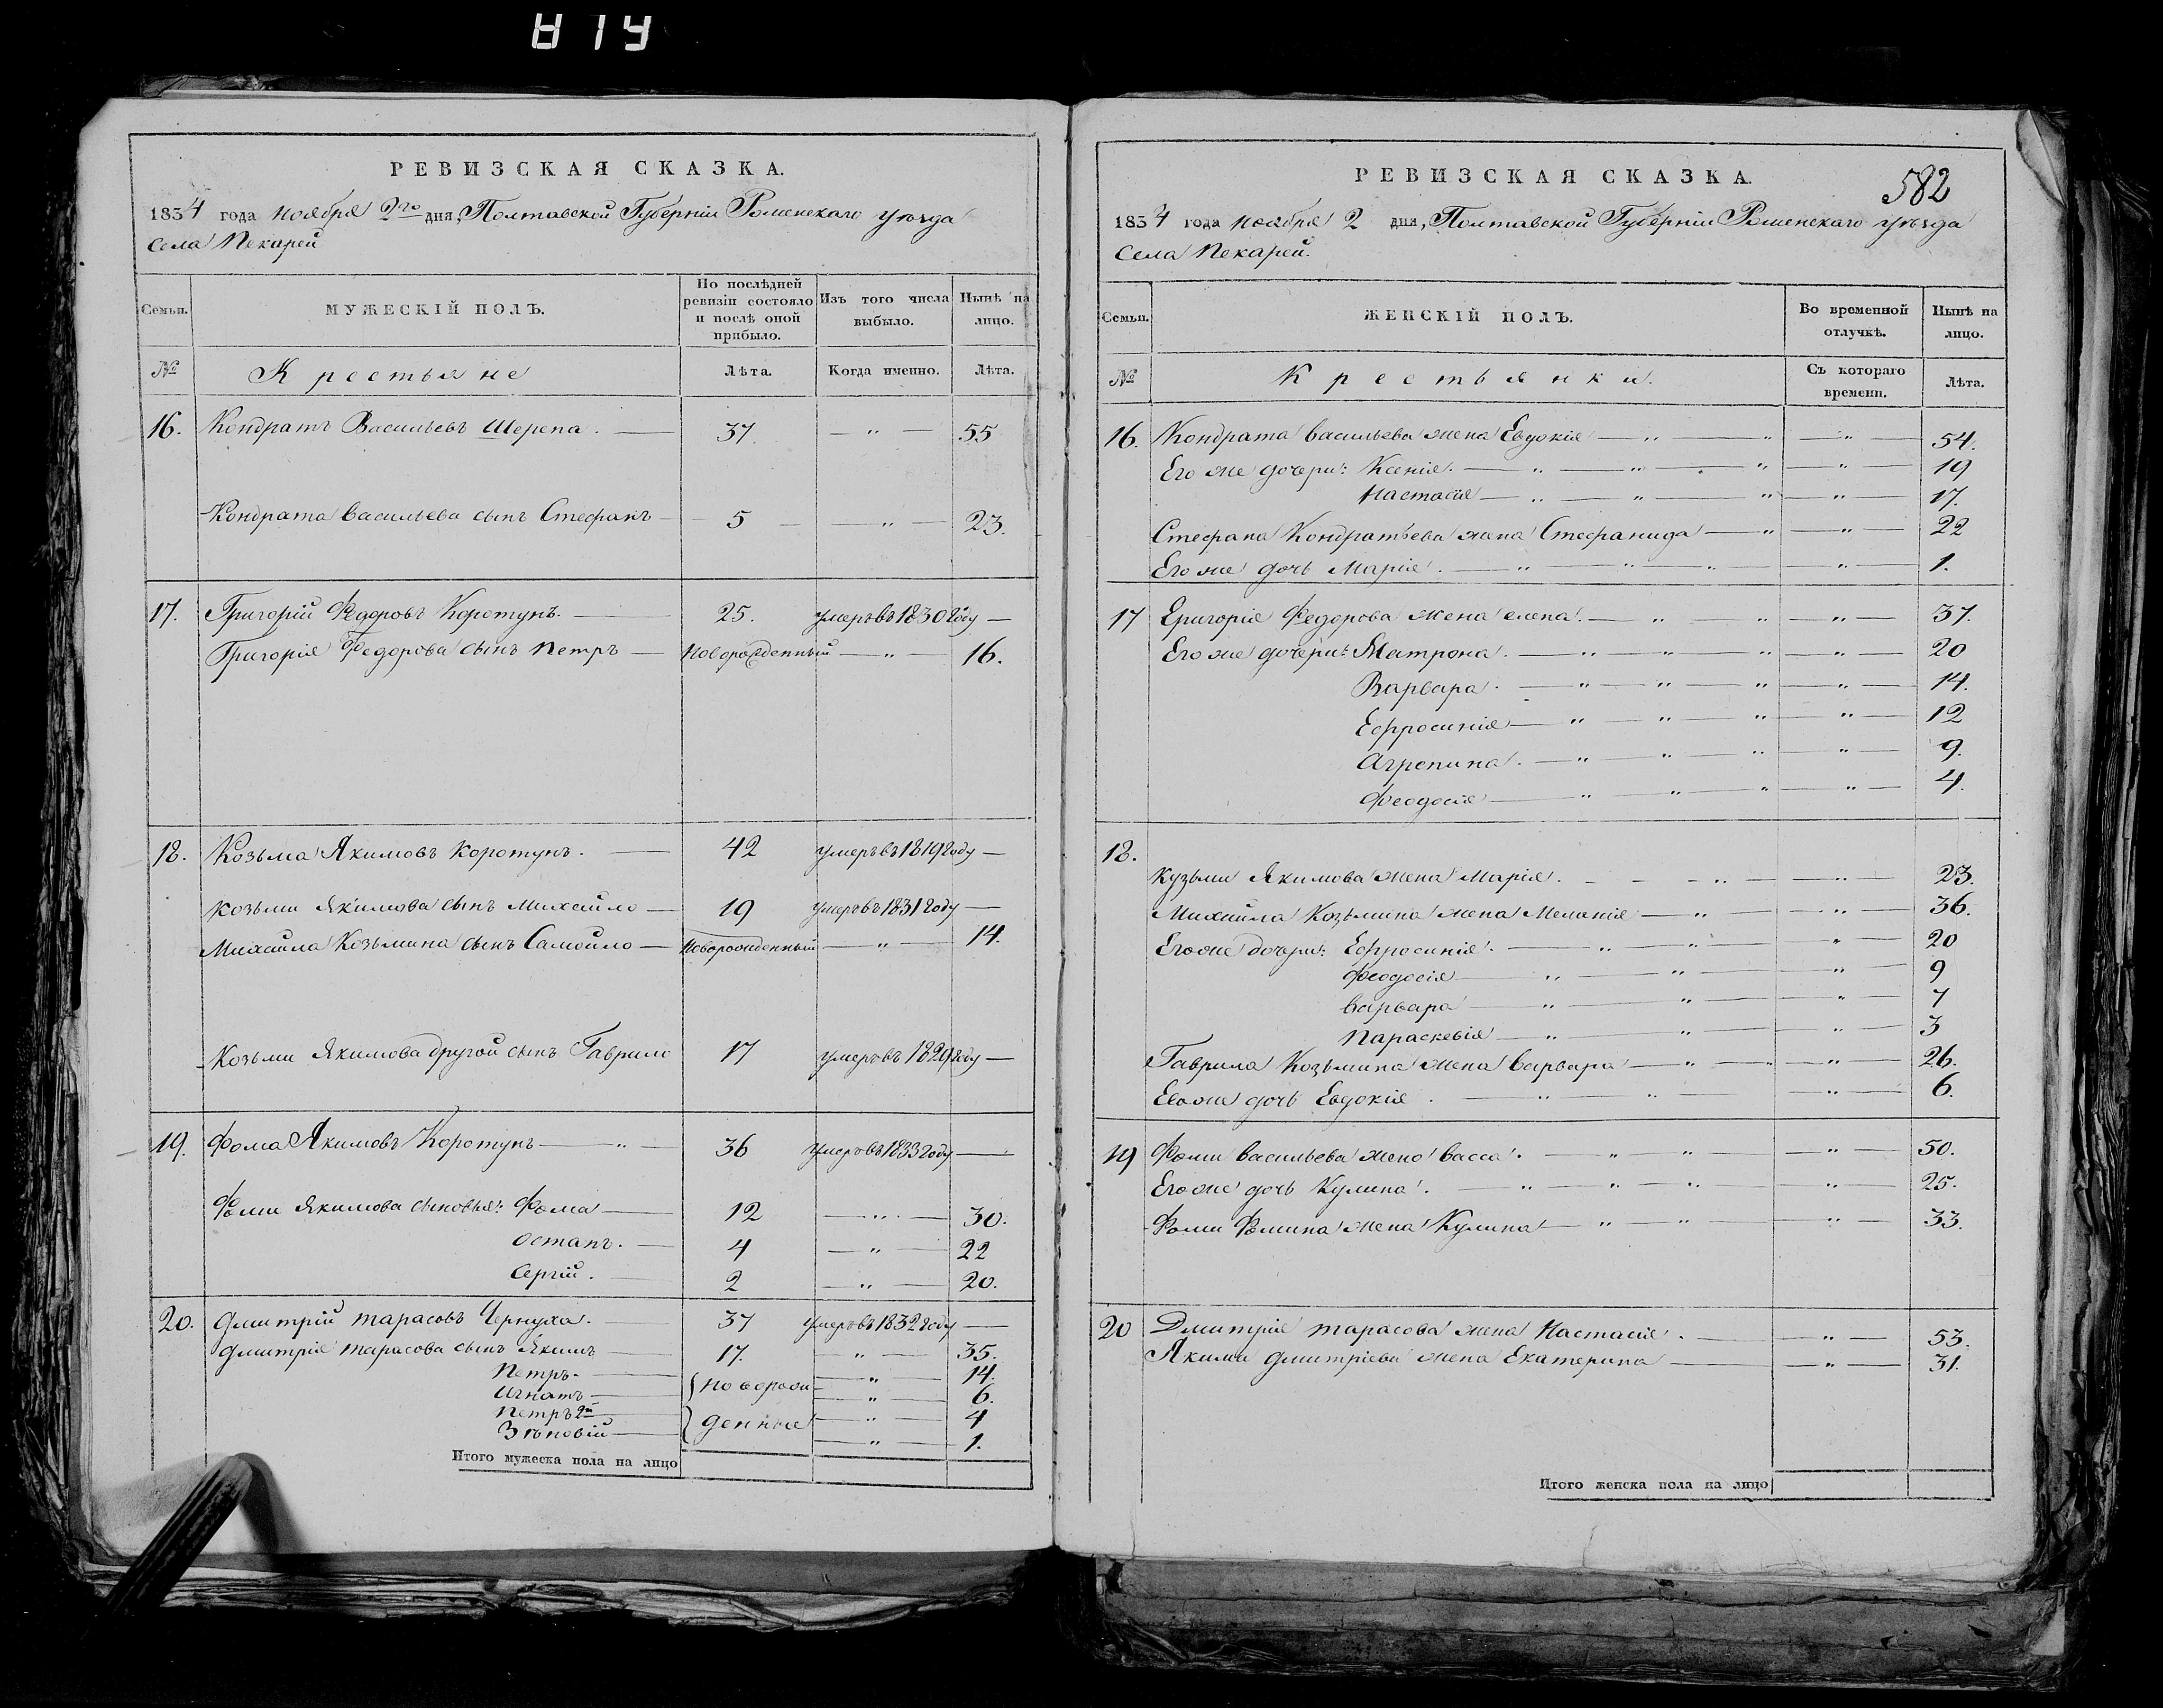 819
РЕВИЗСКАЯ СКАЗКА.
1834 года Ноября 2го дня, Полтавской Губерніи Роменскаго уѣзда
Села Пекарей
Семьи.
МУЖЕСКІЙ ПОЛЪ.
По послѣдней ревизіи состояло и послѣ оной прибыло.
Изъ того числа выбыло.
Нынѣ на лицо.
№
Крестьяне
Лѣта.
Когда именно.
Лѣта.
16. Кондратъ Васильевъ Шерепа. — 37. — „ — 55
Кондрата Васильева сынъ Стефанъ — 5 — „ — 23.
17. Григорій Федоровъ Коротунъ. — 25. умеръ въ 1830 году —
Григорія Федорова сынъ Петръ — Новорожденный — „ — 16.
18. Козьма Якимовъ Коротунъ. — 42 умеръ въ 1819 году —
Козьми Якимова сынъ Михайло — 19 умеръ въ 1831 году —
Михайла Козьмина сынъ Самойло — Новорожденный — „ — 14.
Козьми Якимова другой сынъ Гаврило 17 умеръ въ 1829 году —
19. Фома Якимовъ Коротунъ — „ — 36 умеръ въ 1833 году —
Фоми Якимова сыновья: Фома — 12 — „ — 30.
Остапъ. — 4 — „ — 22
Сергій. — 2 — „ — 20.
20. Дмитрій Тарасовъ Чернуха. 37 умеръ въ 1832 году —
Дмитрія Тарасова сынъ Якимъ — 17. — „ — 35.
Петръ — новорож- — „ — 14.
Игнатъ — — „ — 6.
Петръ 2й — денные — „ — 4
Зѣновій — — „ — 1.
Итого мужеска пола на лицо
РЕВИЗСКАЯ СКАЗКА.
582
1834 года Ноября 2 дня, Полтавской Губерніи Роменскаго уѣзда
Села Пекарей.
Семьи.
ЖЕНСКІЙ ПОЛЪ.
Во временной отлучкѣ.
Нынѣ на лицо.
№
Крестьянки.
Съ котораго времени.
Лѣта.
16. Кондрата Васильева жена Евдокія — „ — „ — „ — 54.
Его же дочери: Ксенія. — „ — „ — „ — „ — 19
Настасія — „ — „ — „ — „ — 17.
Стефана Кондратьева жена Стефанида — „ — „ — 22
Его же дочь Марія. — „ — „ — „ — „ — 1.
17 Григорія Федорова жена Елена. — „ — „ — „ — 37.
Его же дочери: Матрона. — „ — „ — „ — „ — 20
Варвара. — „ — „ — „ — „ — 14.
Ефросинія — „ — „ — „ — „ — 12
Агрепина. — „ — „ — „ — „ — 9.
Феодосія — „ — „ — „ — „ — 4.
18.
Кузьми Якимова жена Марія. — „ — „ — 23.
Михайла Козьмина жена Меланія — „ — „ — 36.
Его же дочери: Ефросинія. — „ — „ — „ — 20
Феодосія — „ — „ — „ — 9
Варвара — „ — „ — „ — 7
Параскевія — „ — „ — „ — 3
Гаврила Козьмина жена Варвара — „ — „ — „ — 26.
Его же дочь Евдокія. — „ — „ — „ — 6.
19 Фоми Васильева жена Васса. — „ — „ — „ — 50.
Его же дочь Кулина. — „ — „ — „ — „ — 25.
Фоми Фомина жена Кулина — „ — „ — „ — 33.
20 Дмитрія Тарасова жена Настасія. — „ — 53.
Якима Дмитріева жена Екатерина — „ — 31.
Итого женска пола на лицо